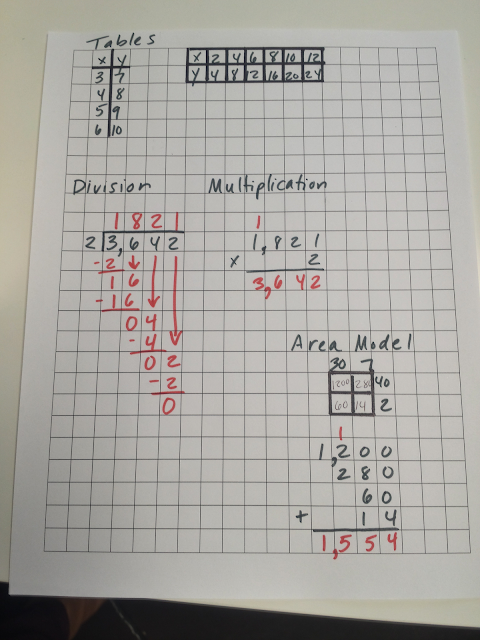 Tables
x y
3 7
4 8
5 9
6 10
x 2 4 6 8 10 12
y 4 8 12 16 20 24
Division
1 8 2 1
2 3,6 4 2
-2
1 6
-1 6
0 4
-4
0 2
-2
0
Multiplication
1
1,8 2 1
x 2
3,6 4 2
Area Model
30 7
1200 280 40
60 14 2
1
1,2 0 0
2 8 0
6 0
+ 1 4
1,5 5 4